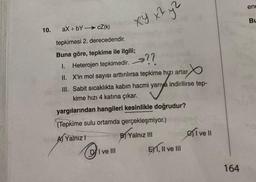 xy x² y²
10. aX + bY → cZ(k)
tepkimesi 2. derecedendir.
Buna göre, tepkime ile ilgili;
I. Heterojen tepkimedir. →??
II. X'in mol sayısı arttırılırsa tepkime hızı artar.
III. Sabit sıcaklıkta kabın hacmi yarıya indirilirse tep-
kime hızı 4 katına çıkar.
yargılarından hangileri kesinlikle doğrudur?
(Tepkime sulu ortamda gerçekleşmiyor.)
A) Yalnız I B) Yalnız III C) I ve II
D) I ve III E) I, II ve III
164